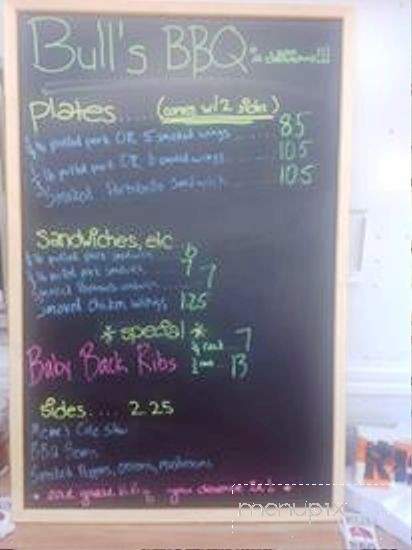 Bull's BBQ
Plates.... (comes w/2 sides)
lb pulled pork OR 5 smoked wings 8.5
lb pulled pork OR smoked wings 10.5
Smoked Portobello Sandwich 10.5
Sandwiches, etc
lb pulled pork sandwich 6
lb pulled pork sandwich 7
Smoked Portobello sandwich 7
Smoked Chicken wings 1.25
* special *
Baby Back Ribs
7
13
sides..... 2.25
Meme's Cole Slaw
BBQ Beans
Smoked Peppers, onions, mushrooms
you deserve
menupix